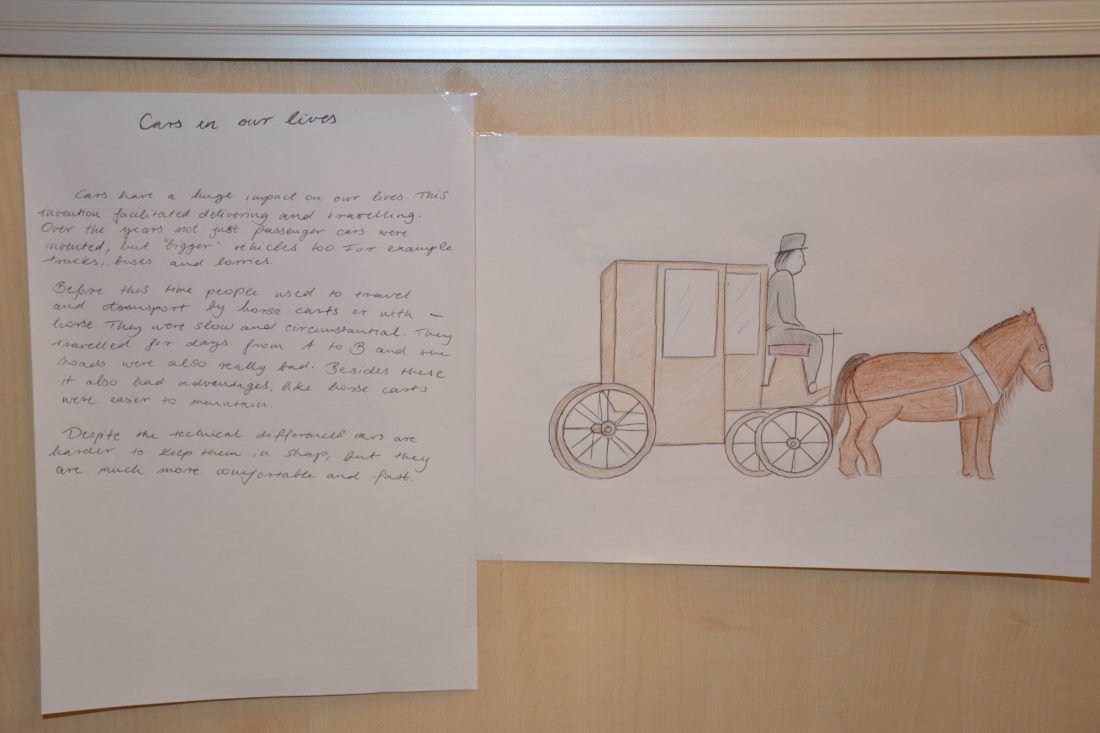 Cars in our lives
Cars have a huge impact on our lives. This
invention facilitated delivering and travelling.
Over the years not just passenger cars were
invented, but "bigger" vehicles too. For example
trucks, buses and lorries.
Before this time people used to travel
and transport by horse carts or with
horse. They were slow and circumstantial. They
travelled for days from A to B and the
roads were also really bad. Besides these
it also had advantages, like horse carts
were easier to maintain.
Despite the technical differences cars are
harder to keep them in shap, but they
are much more comfortable and fast.